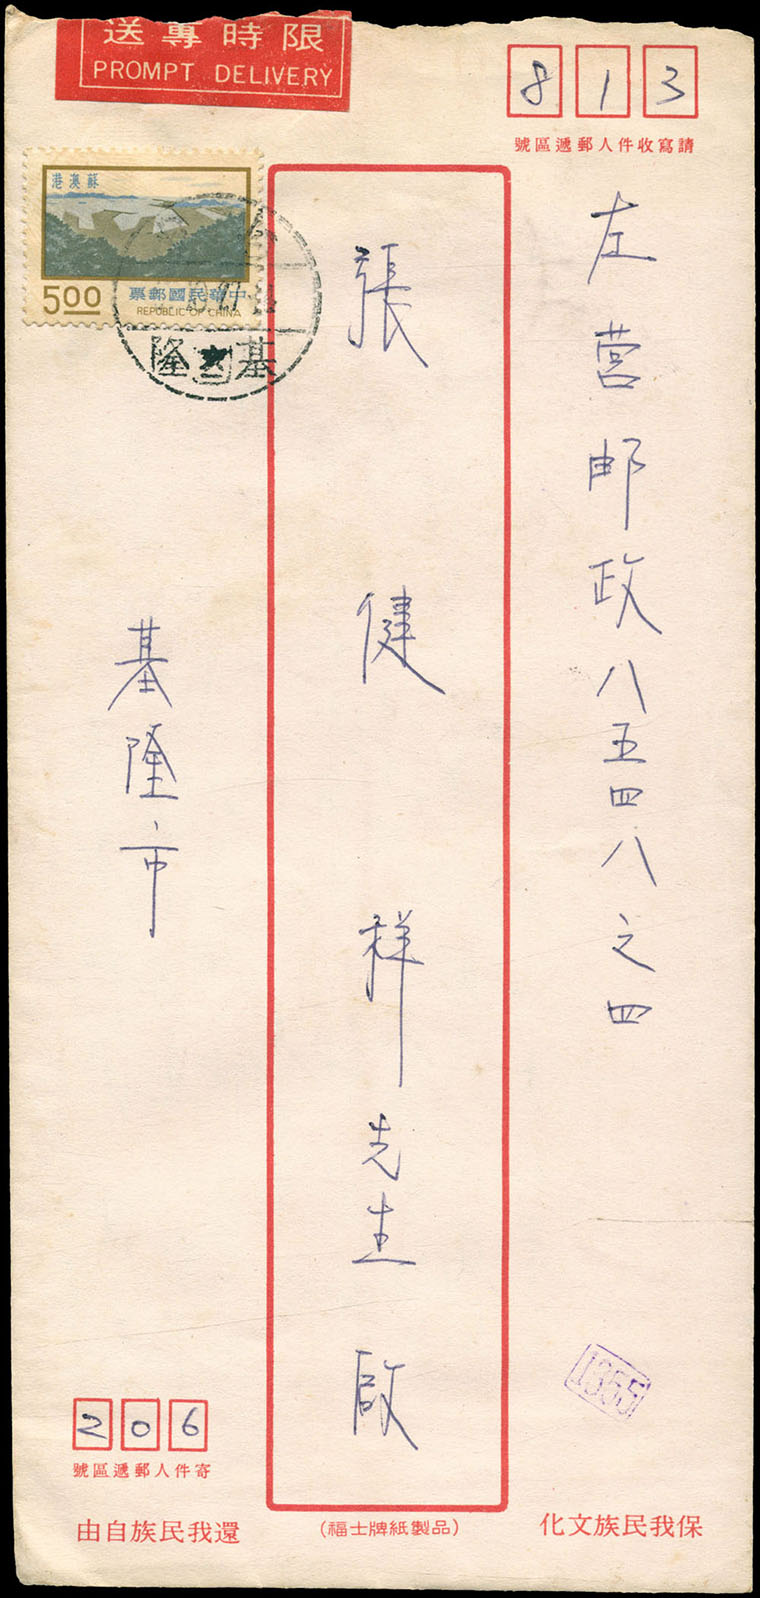 限時專送
PROMPT DELIVERY
813
請寫收件人郵遞區號
左营邮政八五四八之四
張健祥先生啟
基隆市
蘇澳港
5.00
中華民國郵票
REPUBLIC OF CHINA
基隆
1355
206
寄件人郵遞區號
保我民族文化
(福士牌紙製品)
還我民族自由